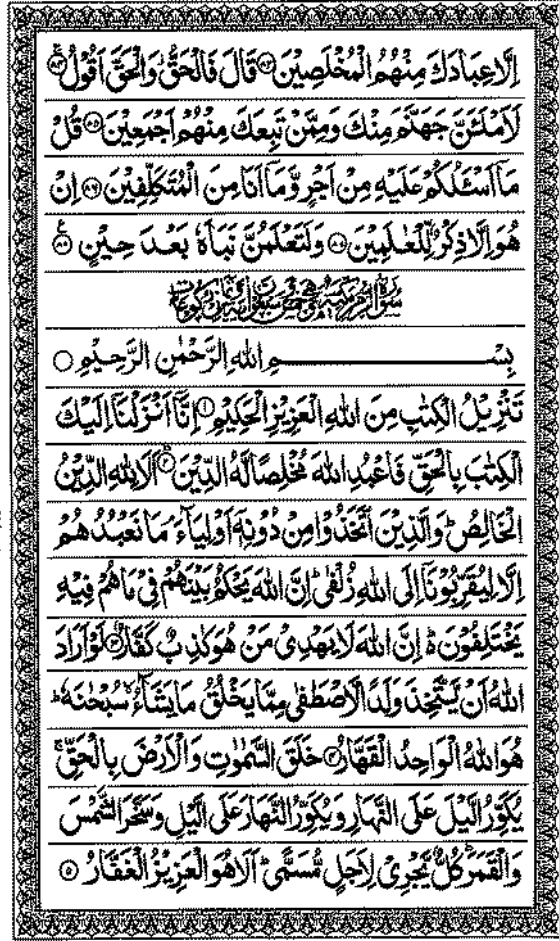 اِلَّا عِبَادَكَ مِنْهُمُ الْمُخْلَصِيْنَ ﴿٨٣﴾ قَالَ فَالْحَقُّ وَالْحَقَّ اَقُوْلُ ﴿٨٤﴾
لَاَمْلَـَٔنَّ جَهَنَّمَ مِنْكَ وَمِمَّنْ تَبِعَكَ مِنْهُمْ اَجْمَعِيْنَ ﴿٨٥﴾ قُلْ
مَاۤ اَسْـَٔلُكُمْ عَلَيْهِ مِنْ اَجْرٍ وَّمَاۤ اَنَا مِنَ الْمُتَكَلِّفِيْنَ ﴿٨٦﴾ اِنْ
هُوَ اِلَّا ذِكْرٌ لِّلْعٰلَمِيْنَ ﴿٨٧﴾ وَلَتَعْلَمُنَّ نَبَاَهٗ بَعْدَ حِيْنٍ ﴿٨٨﴾
بِسْمِ اللهِ الرَّحْمٰنِ الرَّحِيْمِ
تَنْزِيْلُ الْكِتٰبِ مِنَ اللهِ الْعَزِيْزِ الْحَكِيْمِ ﴿١﴾ اِنَّاۤ اَنْزَلْنَاۤ اِلَيْكَ
الْكِتٰبَ بِالْحَقِّ فَاعْبُدِ اللهَ مُخْلِصًا لَّهُ الدِّيْنَ ﴿٢﴾ اَلَا لِلّٰهِ الدِّيْنُ
الْخَالِصُ ؕ وَالَّذِيْنَ اتَّخَذُوْا مِنْ دُوْنِهٖۤ اَوْلِيَآءَ مَا نَعْبُدُهُمْ
اِلَّا لِيُقَرِّبُوْنَاۤ اِلَى اللهِ زُلْفٰى ؕ اِنَّ اللهَ يَحْكُمُ بَيْنَهُمْ فِيْ مَا هُمْ فِيْهِ
يَخْتَلِفُوْنَ ؕ۬ اِنَّ اللهَ لَا يَهْدِيْ مَنْ هُوَ كٰذِبٌ كَفَّارٌ ﴿٣﴾ لَوْ اَرَادَ
اللهُ اَنْ يَّتَّخِذَ وَلَدًا لَّاصْطَفٰى مِمَّا يَخْلُقُ مَا يَشَآءُ ۙ سُبْحٰنَهٗ ؕ
هُوَ اللهُ الْوَاحِدُ الْقَهَّارُ ﴿٤﴾ خَلَقَ السَّمٰوٰتِ وَالْاَرْضَ بِالْحَقِّ ۚ
يُكَوِّرُ الَّيْلَ عَلَى النَّهَارِ وَيُكَوِّرُ النَّهَارَ عَلَى الَّيْلِ وَسَخَّرَ الشَّمْسَ
وَالْقَمَرَ ؕ كُلٌّ يَّجْرِيْ لِاَجَلٍ مُّسَمًّى ؕ اَلَا هُوَ الْعَزِيْزُ الْغَفَّارُ ﴿٥﴾